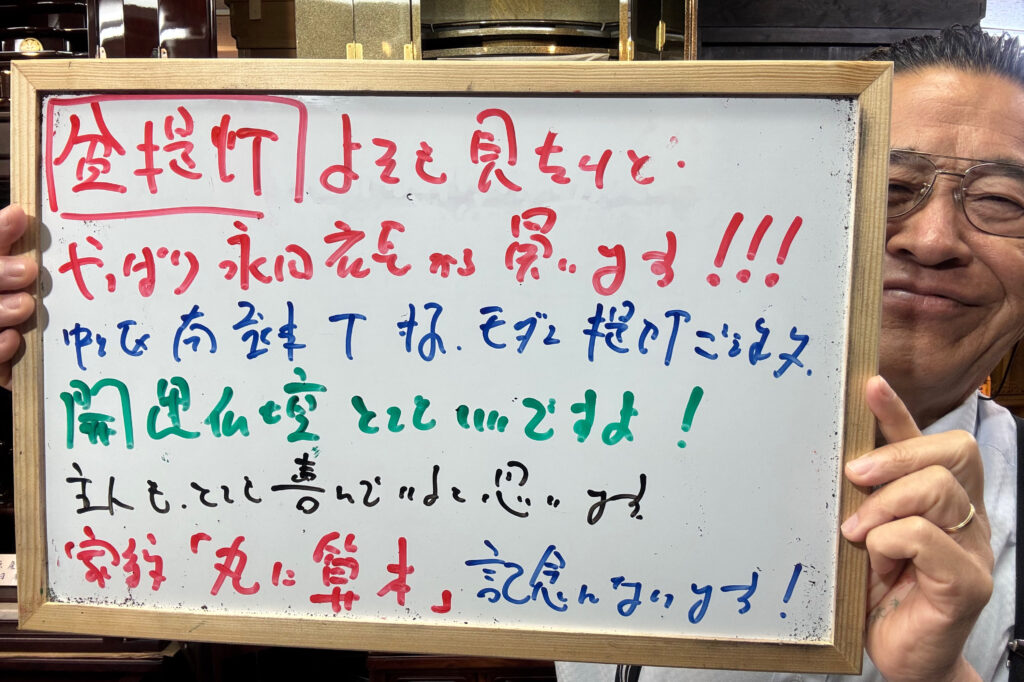 盆提灯 よそも見たけど・
やっぱり永田社長から買います!!!
モダン提灯ご注文.
開運仏壇とってもいいですよ!
主人も、とても喜んでいると思います
家紋「丸に算木」記念になります!